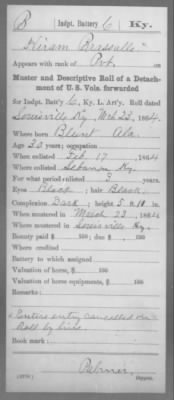 B | Indpt. Battery 6 | Ky.
Hiram
Appears with rank of Pvt. on
Muster and Descriptive Roll of a Detach-
ment of U. S. Vols. forwarded
for Indpt. Bat'y 6, Ky. L. Art'y. Roll dated
Louisville Ky, Mch 23, 1864.
Where born Blunt Ala.
Age 30 years; occupation
When enlisted Feb. 17, 1864
Where enlisted Lebanon Ky.
For what period enlisted 3 years.
Eyes Black; hair Black.
Complexion Dark; height 5 ft. 10 in.
When mustered in March 23, 1864
Where mustered in Louisville, Ky.
Bounty paid $ 100; due $ 100
Where credited
Battery to which assigned
Valuation of horse, $ 100
Valuation of horse equipments, $ 100
Remarks:
Entire entry cancelled on
Roll by lines.
Book mark:
Palmer
Copyist.